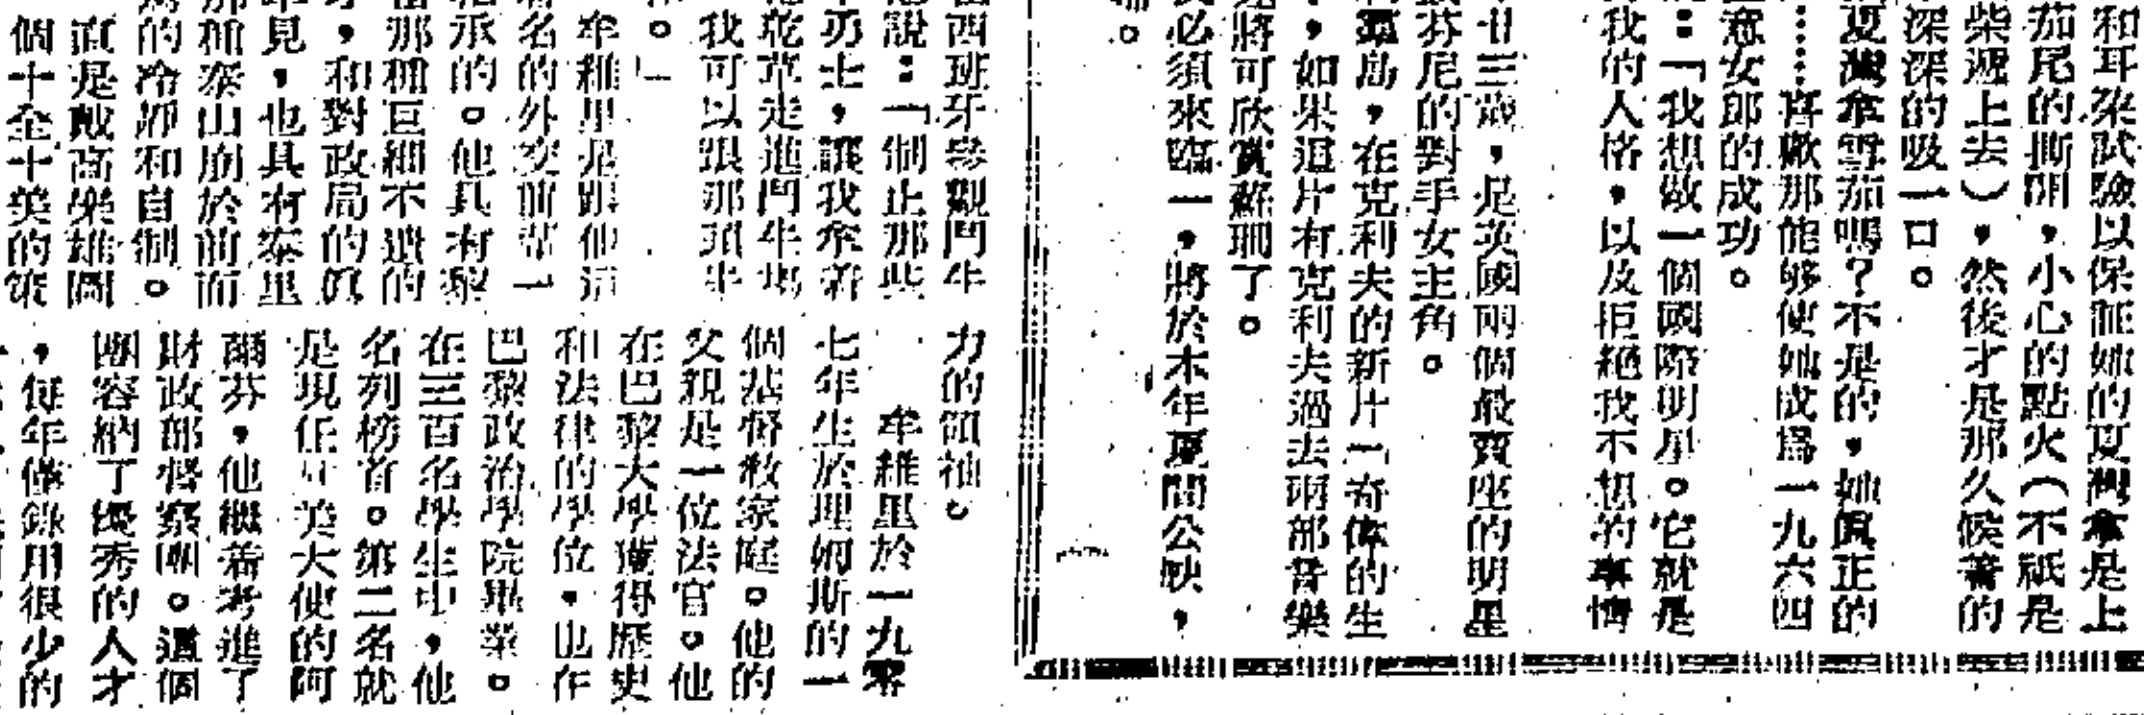 和耳朵試驗以保証她的夏灣拿是上
茄尾的撕開，小心的點火（不祇是
柴遞上去），然後才是那久候著的
深深的吸一口。
夏灣拿雪茄嗎？不是的，她眞正的
……喜歡那能够使她成爲一九六四
意女郎的成功。
：「我想做一個國際明星。它就是
我的人格，以及拒絕我不想的事情
廿三歲，是英國兩個最賣座的明星
芬尼的對手女主角。
島，在克利夫的新片「奇偉的生
，如果這片有克利夫過去兩部音樂
將可欣賞蘇珊了。
必須來臨一，將於本年夏間公映，
。
西班牙參觀鬥牛
說：「制止那些
勇士，讓我拿着
乾草走進鬥牛場
我可以跟那頭牛
。」
牟維里是跟他這
名的外交前輩一
承的。他具有黎
那種巨細不遺的
，和對政局的眞
見，也具有泰里
那種泰山崩於前而
的冷靜和自制。
直是戴高樂雄圖
個十全十美的策
力的領袖。
牟維里於一九零
七年生於理姆斯的一
個基督敎家庭。他的
父親是一位法官。他
在巴黎大學獲得歷史
和法律的學位，也在
巴黎政治學院畢業。
在三百名學生中，他
名列榜首。第二名就
是現任駐美大使的阿
爾芬，他繼着考進了
財政部督察團。這個
團容納了優秀的人才
，每年僅錄用很少的